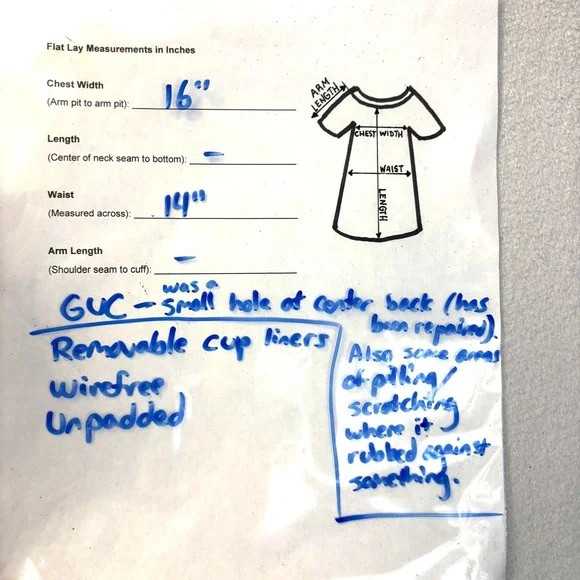 Flat Lay Measurements in Inches
Chest Width
(Arm pit to arm pit): 16"
Length
(Center of neck seam to bottom): –
Waist
(Measured across): 14"
Arm Length
(Shoulder seam to cuff): –
ARM
LENGTH
CHEST WIDTH
WAIST
LENGTH
GUC – was a small hole at center back (has
been repaired).
Removable cup liners
Wirefree
Unpadded
Also some areas
of pilling/
scratching
where it
rubbed against
something.